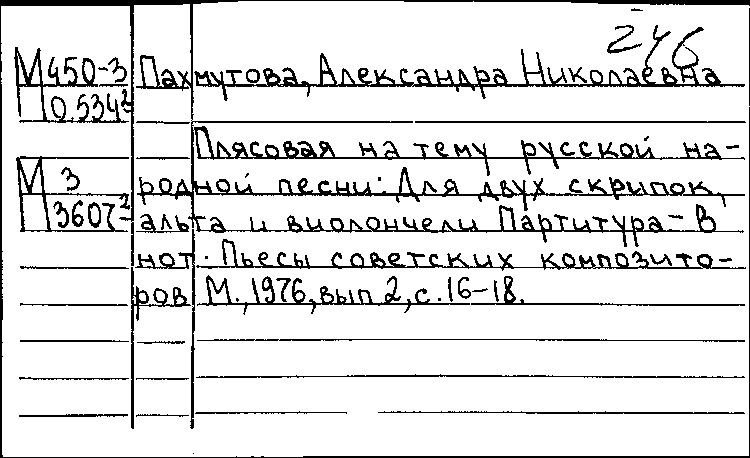 246
М450-3 Пахмутова, Александра Николаевна
П0.534²
Плясовая на тему русской на-
М 3 родной песни: Для двух скрипок,
П3607-² альта и виолончели Партитура - В
нот. Пьесы советских композито-
ров М., 1976, вып 2, с. 16-18.